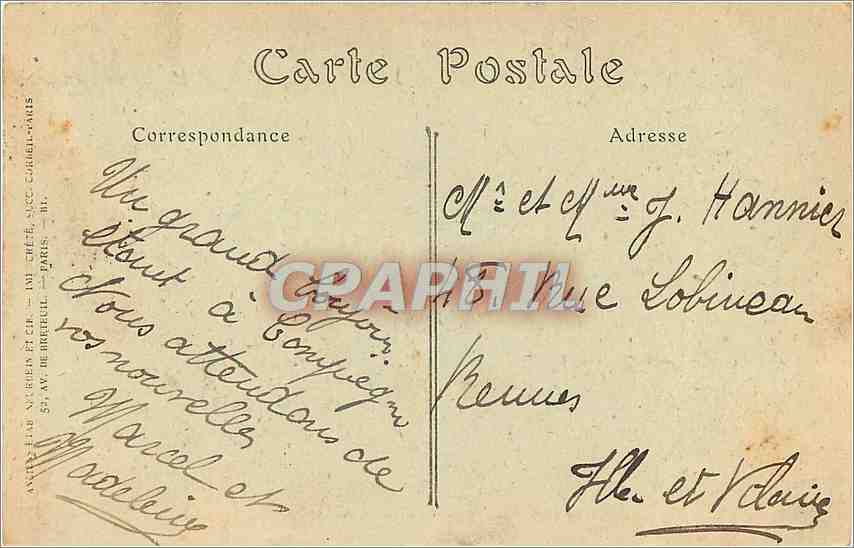 Carte Postale
Correspondance
Adresse
Un grand bonjour
étant à Compiègne
Nous attendons de
vos nouvelles
Marcel et
Madeleine
Mr et Mme J. Hannier
48, Rue Lobineau
Rennes
Ille et Vilaine
CPAPHIL
ANCIENS ETAB. NEURDEIN ET CIE. — IMP. CRÉTÉ, SUCC. CORBEIL-PARIS
52, AV. DE BRETEUIL. — PARIS. — BI.